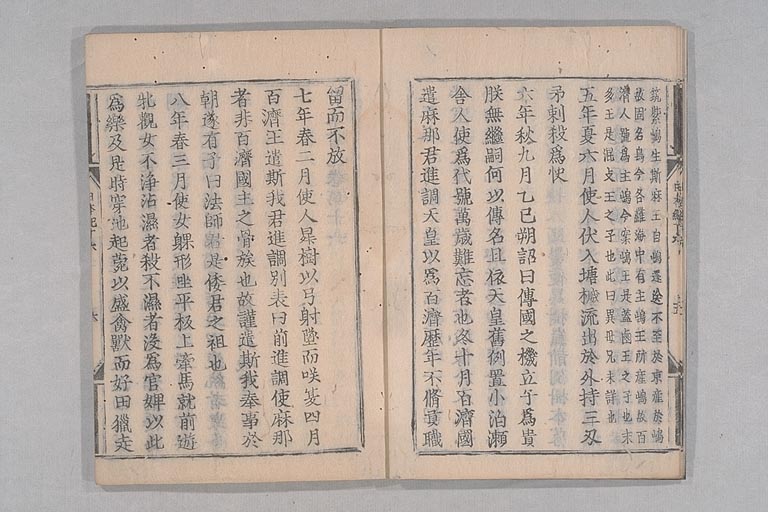 筑紫嶋生斯麻王自嶋還送不至於京産於嶋
故因名焉今各羅海中有主嶋王所産嶋故百
濟人號為主嶋今案嶋王是蓋鹵王之子也末
多王是混支王之子也此曰異母兄未詳也
五年夏六月使人伏入塘楲流出於外持三刃
矛刺殺為快
六年秋九月乙巳朔詔曰傳國之機立子為貴
朕無繼嗣何以傳名且依天皇舊例置小泊瀬
舍人使為代號萬歳難忘者也冬十月百濟國
遣麻那君進調天皇以為百濟歴年不脩貢職
留而不放
七年春二月使人昇樹以弓射墜而咲夌四月
百濟王遣斯我君進調別表曰前進調使麻那
者非百濟國主之骨族也故謹遣斯我奉事於
朝遂有子曰法師君是倭君之祖也
八年春三月使女躶形坐平板上牽馬就前遊
牝觀女不浄沾濕者殺不濕者沒為官婢以此
為樂及是時穿池起菀以盛禽獸而好田獵走